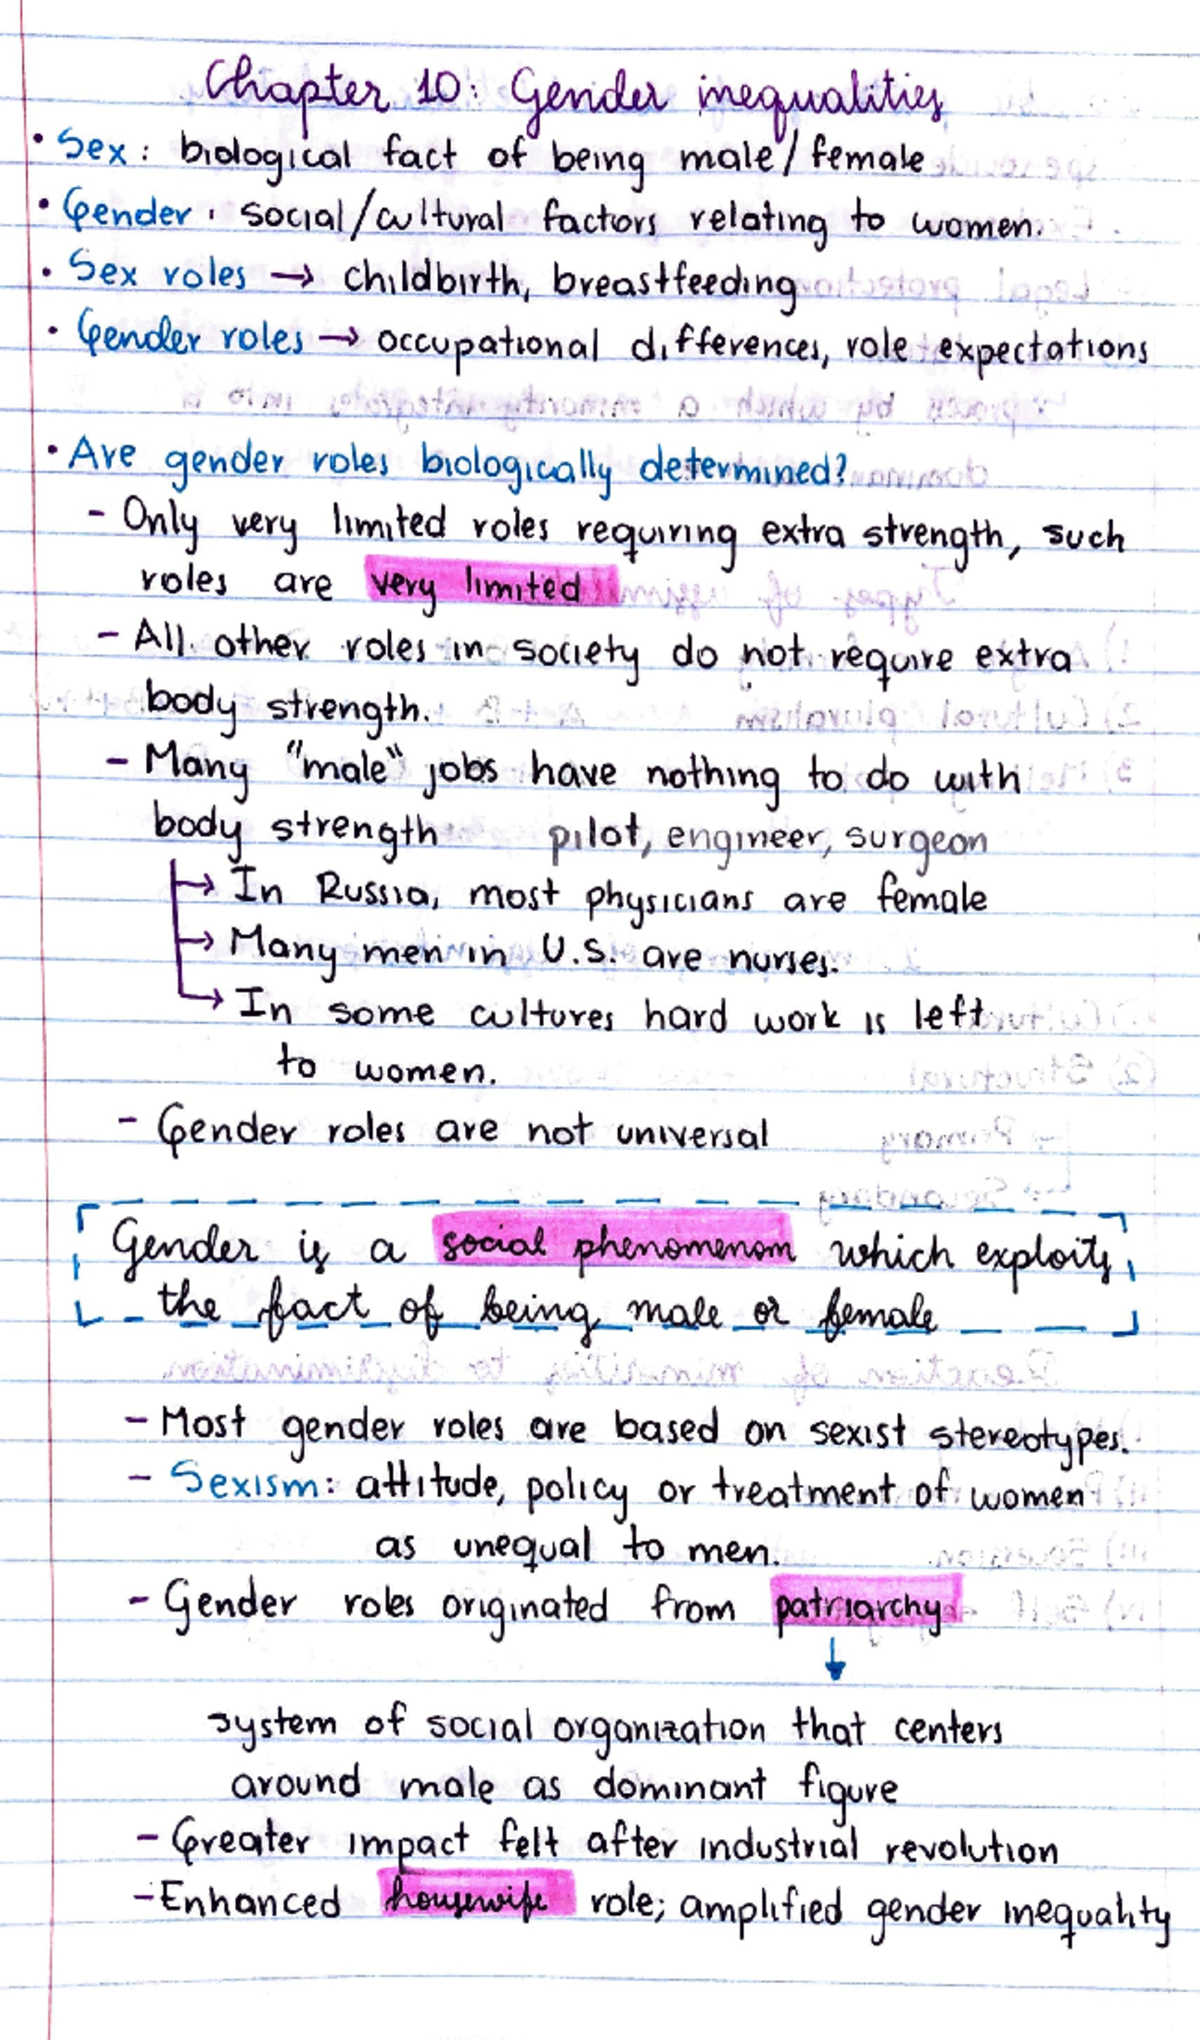 Chapter 10: Gender inequalities
• Sex: biological fact of being male/female
• Gender: social/cultural factors relating to women.
• Sex roles → childbirth, breastfeeding
• Gender roles → occupational differences, role expectations
• Are gender roles biologically determined?
- Only very limited roles requiring extra strength, such
roles are very limited
- All other roles in society do not require extra
body strength.
- Many "male" jobs have nothing to do with
body strength pilot, engineer, surgeon
→ In Russia, most physicians are female
→ Many men in U.S. are nurses.
→ In some cultures hard work is left
to women.
- Gender roles are not universal
Gender is a social phenomenom which exploits
the fact of being male or female
- Most gender roles are based on sexist stereotypes.
- Sexism: attitude, policy or treatment of women
as unequal to men.
- Gender roles originated from patriarchy
↓
system of social organization that centers
around male as dominant figure
- Greater impact felt after industrial revolution
- Enhanced housewife role; amplified gender inequality